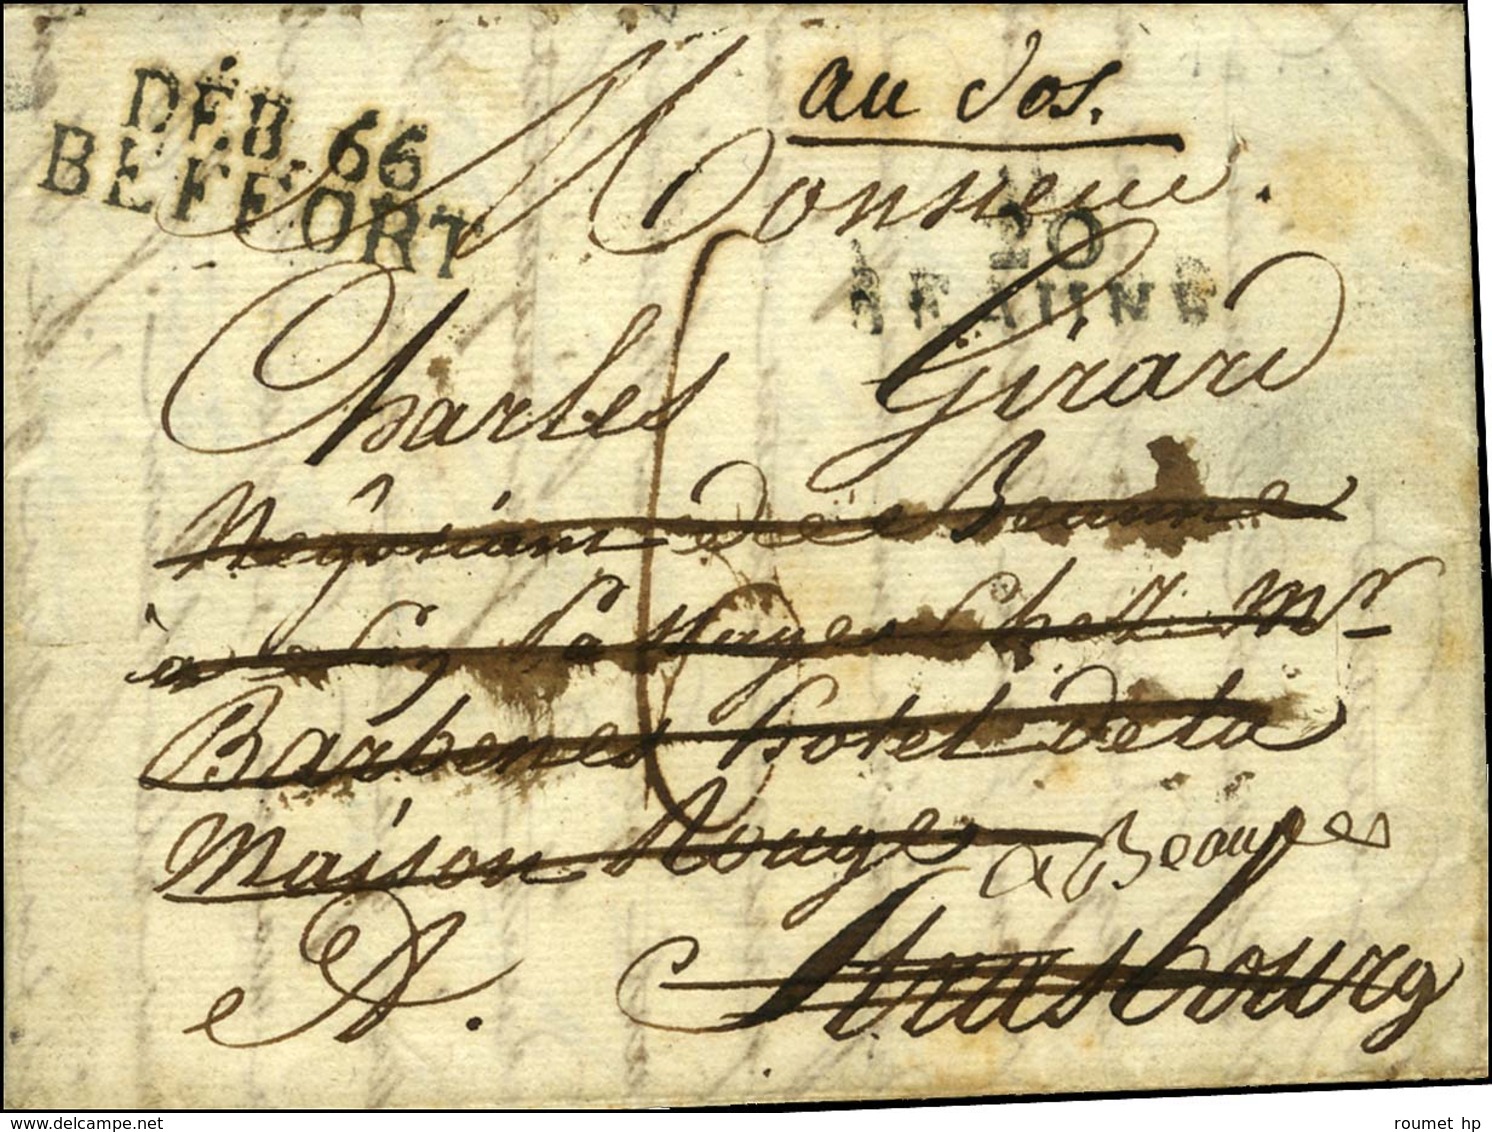 au dos.
DÉB. 66
BEFFORT
Monsieur.
20
BEAUNE
Charles Girard
Négotiant de Beaune
à chez Mr
hotel de la
Maison Rouge
a Beaune
A. Strasbourg
www.delcampe.net
roumet hp